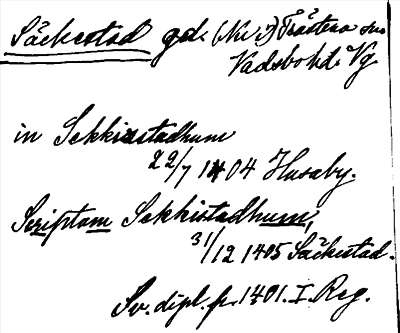 Säckestad gd. (Nr 3) Trästena sn
Vadsbo hd. Vg.
in Sekkiæstadhum
22/7 1404 Husaby.
Scriptam Sekkistadhum,
31/12 1405 Säckestad.
Sv. dipl. fr. 1401. I. Reg.